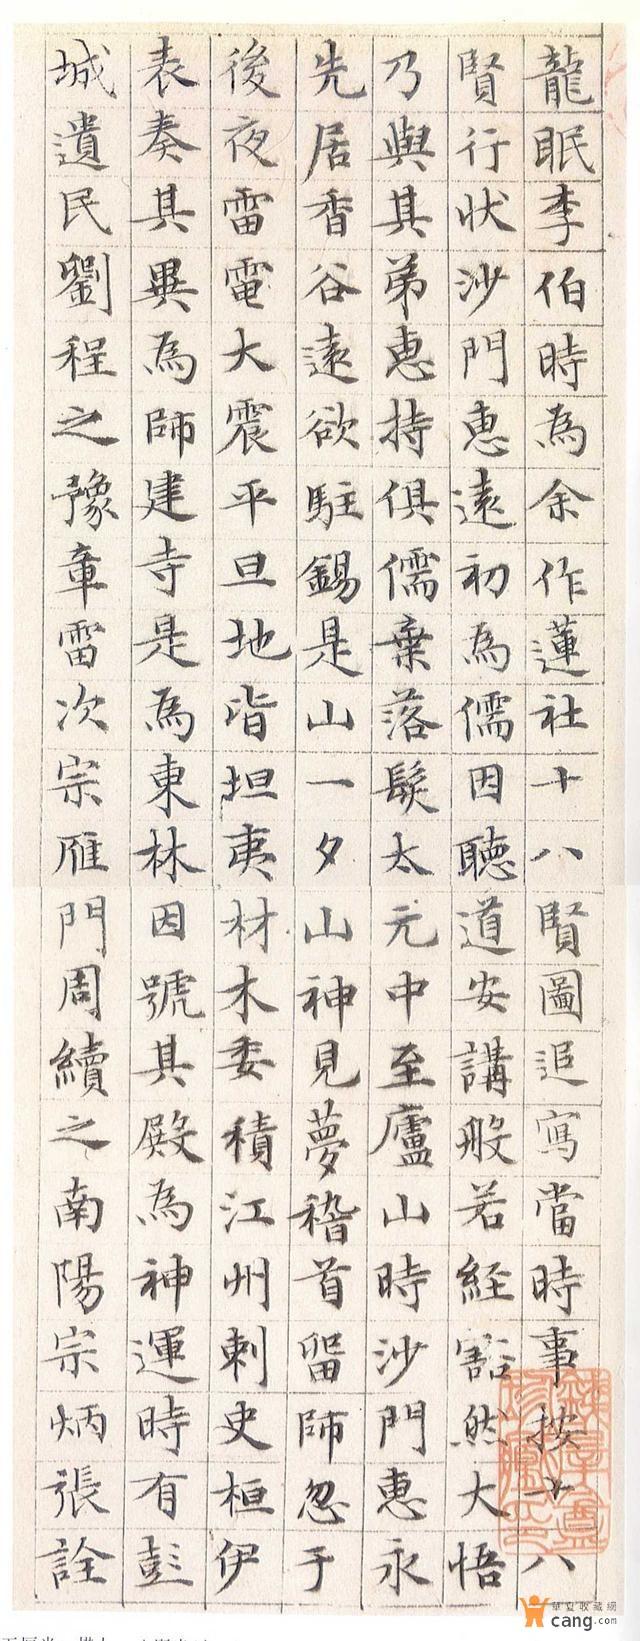 龍眠李伯時為余作蓮社十八賢圖追寫當時事按十八
賢行狀沙門惠遠初為儒因聽道安講般若經豁然大悟
乃與其弟惠持俱儒棄落髮太元中至廬山時沙門惠永
先居香谷遠欲駐錫是山一夕山神見夢稽首留師忽于
後夜雷電大震平旦地皆坦夷材木委積江州刺史桓伊
表奏其異為師建寺是為東林因號其殿為神運時有彭
城遺民劉程之豫章雷次宗雁門周續之南陽宗炳張詮
華夏收藏網
cang.com